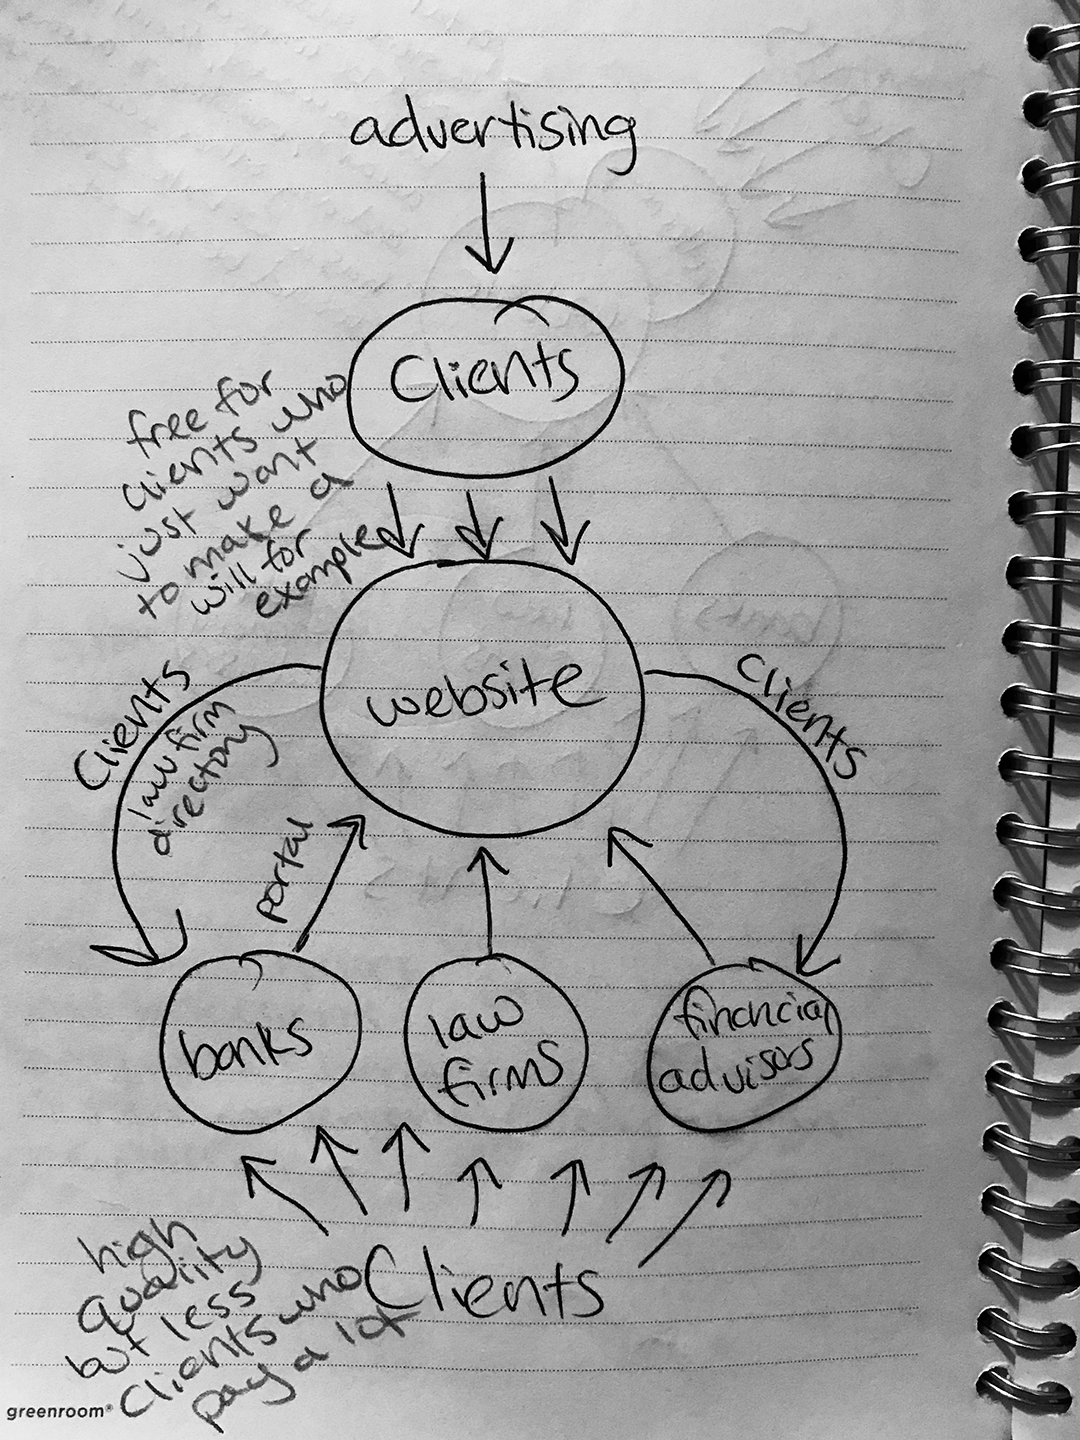 advertising
Clients
free for
clients who
just want
to make a
will for
example
website
Clients
law firm
directory
portal
Clients
banks
law
firms
financial
advisors
Clients
high
quality
but less
Clients who
pay a lot
greenroom®